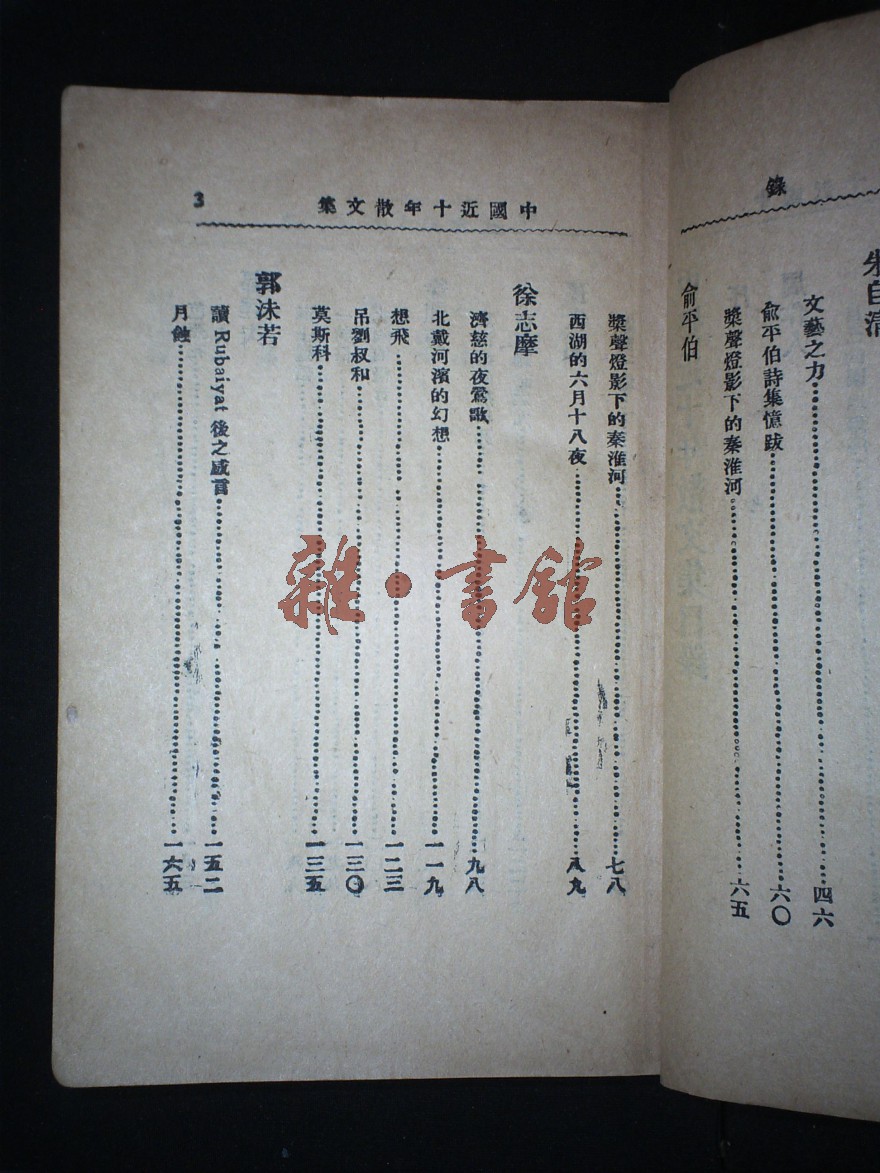 錄
朱自清
文藝之力⋯⋯四六
俞平伯詩集憶跋⋯⋯六〇
槳聲燈影下的秦淮河⋯⋯六五
俞平伯
中國近十年散文集
3
槳聲燈影下的秦淮河⋯⋯七八
西湖的六月十八夜⋯⋯八九
徐志摩
濟慈的夜鶯歌⋯⋯九八
北戴河濱的幻想⋯⋯一一九
想飛⋯⋯一二三
吊劉叔和⋯⋯一三〇
莫斯科⋯⋯一三五
郭沫若
讀 Rubaiyat 後之感言⋯⋯一五二
月蝕⋯⋯一六五
雜·書館